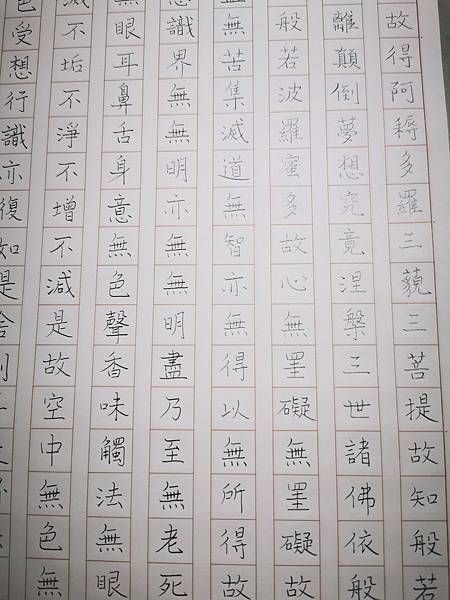 色受想行識亦復如是舍利
滅不垢不淨不增不減是故空中無色無
眼耳鼻舌身意無色聲香味觸法無眼
識界無無明亦無無明盡乃至無老死
無苦集滅道無智亦無得以無所得故
般若波羅蜜多故心無罣礙無罣礙故
離顛倒夢想究竟涅槃三世諸佛依般
故得阿耨多羅三藐三菩提故知般若